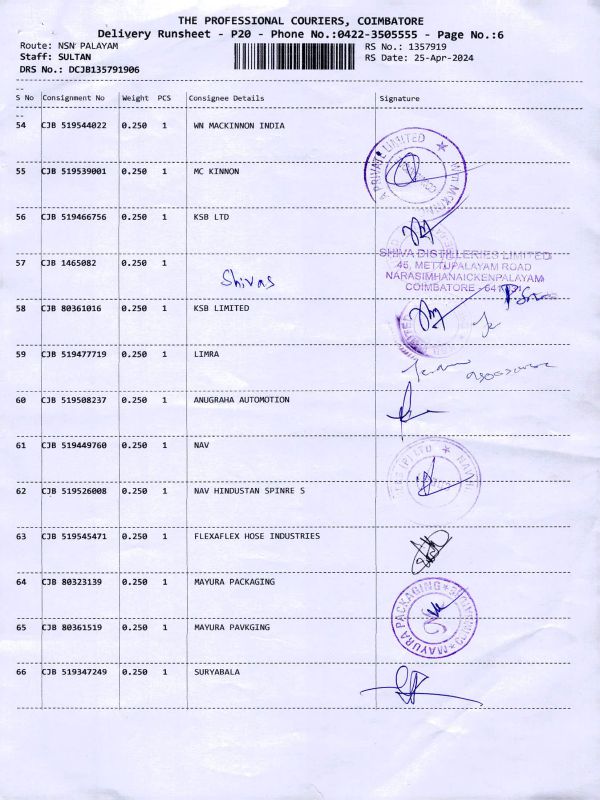 THE PROFESSIONAL COURIERS, COIMBATORE
Delivery Runsheet - P20 - Phone No.:0422-3505555 - Page No.:6
Route: NSN PALAYAM
RS No.: 1357919
Staff: SULTAN
RS Date: 25-Apr-2024
DRS No.: DCJB135791906
S No Consignment No Weight PCS Consignee Details Signature
54 CJB 519544022 0.250 1 WN MACKINNON INDIA
A PRIVATE LIMITED
55 CJB 519539001 0.250 1 MC KINNON
56 CJB 519466756 0.250 1 KSB LTD
SHIVA DISTILLERIES LIMITED
46, METTUPALAYAM ROAD
NARASIMHANAICKENPALAYAM
COIMBATORE
57 CJB 1465082 0.250 1
Shivas
58 CJB 80361016 0.250 1 KSB LIMITED
59 CJB 519477719 0.250 1 LIMRA
60 CJB 519508237 0.250 1 ANUGRAHA AUTOMOTION
61 CJB 519449760 0.250 1 NAV
62 CJB 519526008 0.250 1 NAV HINDUSTAN SPINRE S
63 CJB 519545471 0.250 1 FLEXAFLEX HOSE INDUSTRIES
64 CJB 80323139 0.250 1 MAYURA PACKAGING
MAYURA PACKAGING
65 CJB 80361519 0.250 1 MAYURA PAVKGING
66 CJB 519347249 0.250 1 SURYABALA